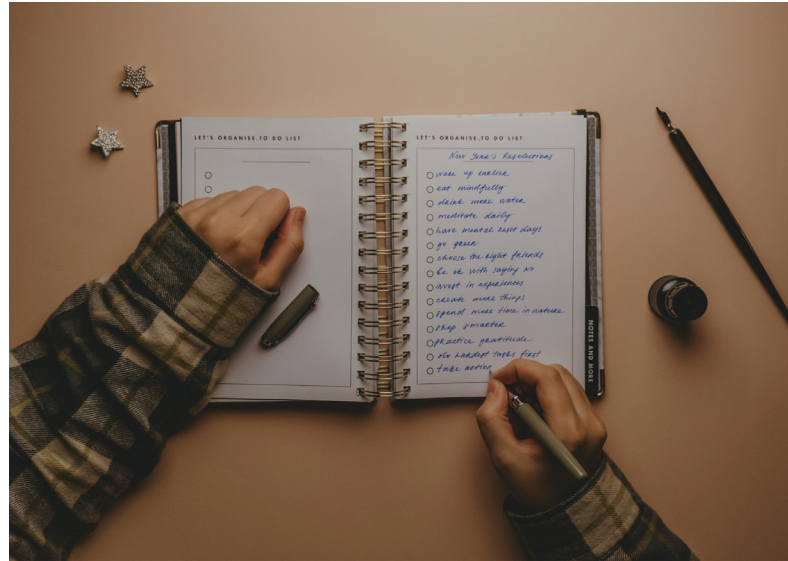 LET'S ORGANISE. TO DO LIST
LET'S ORGANISE. TO DO LIST
New Year's Resolutions
wake up earlier
eat mindfully
drink more water
meditate daily
have mental rest days
go green
choose the right friends
be ok with saying no
invest in experiences
create more things
spend more time in nature
shop smarter
practice gratitude
do hardest tasks first
take action
NOTES AND MORE